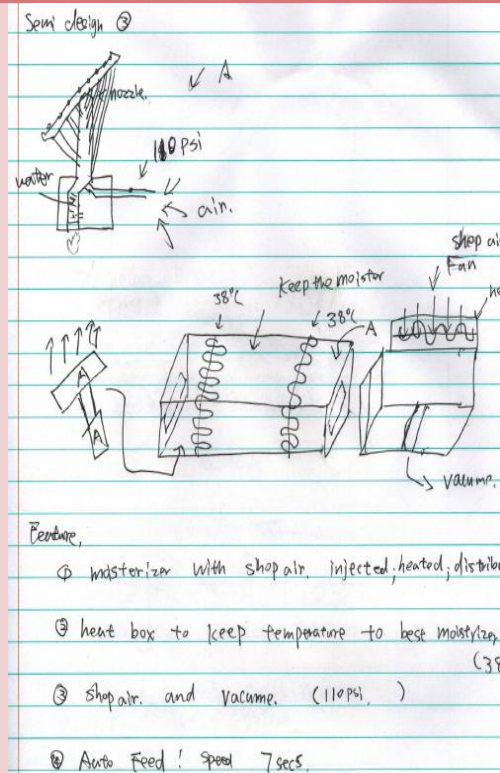 Semi design ③
nozzle.
A
110 psi
water
air.
shop ai
Fan
he
38°C
Keep the moister
38°C
A
A
A
vacume.
Feature,
① moisterizer with shop air. injected, heated, distribu
② heat box to keep temperature to best moistrizer
(38
③ shop air. and vacume. (110psi, )
④ Auto Feed! speed 7secs.